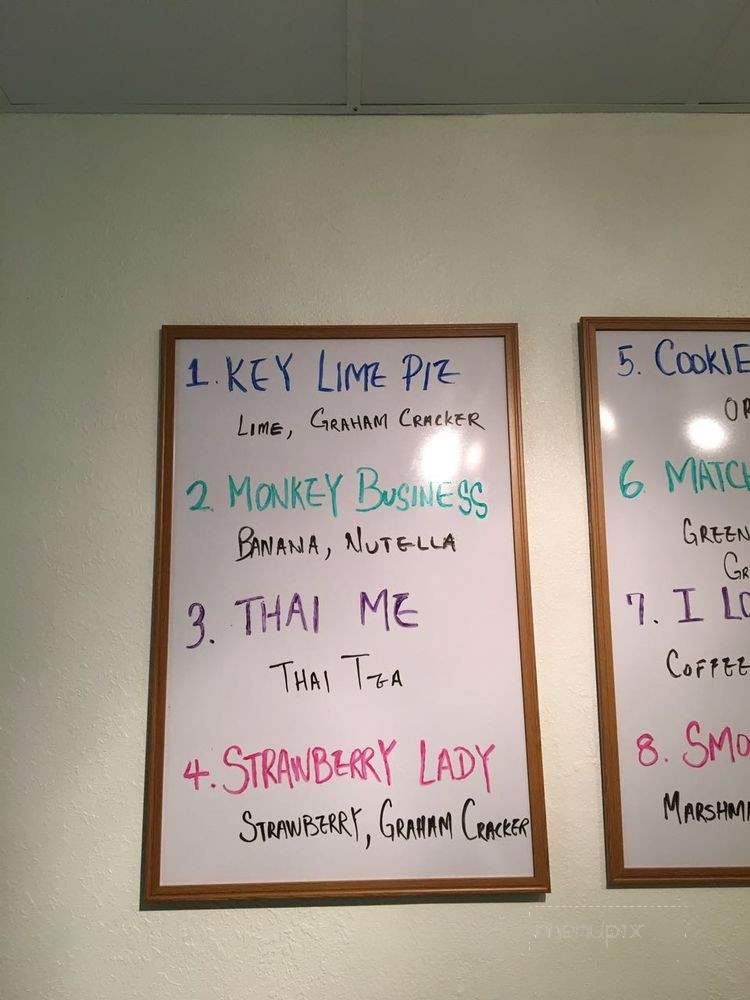 1. KEY LIME PIE
LIME, GRAHAM CRACKER
2. MONKEY BUSINESS
BANANA, NUTELLA
3. THAI ME
THAI TEA
4. STRAWBERRY LADY
STRAWBERRY, GRAHAM CRACKER
5. COOKIE
6. MATCH
GREEN
7. I LO
COFFEE
8. SMO
MARSHM
menupix